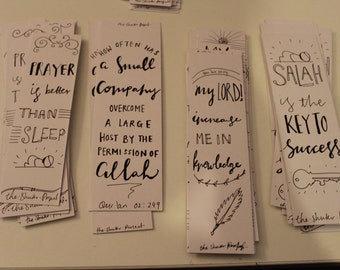 PRAYER
is better
THAN
SLEEP
the Shukr Project
the Shukr Project
HOW OFTEN HAS
a Small
Company
OVERCOME
A LARGE
HOST BY THE
PERMISSION OF
Allah
Qur'an 02:249
the Shukr Project
my LORD!
increase
ME IN
knowledge
the Shukr Project
SALAH
is the
KEY TO
Success
the Shukr Project